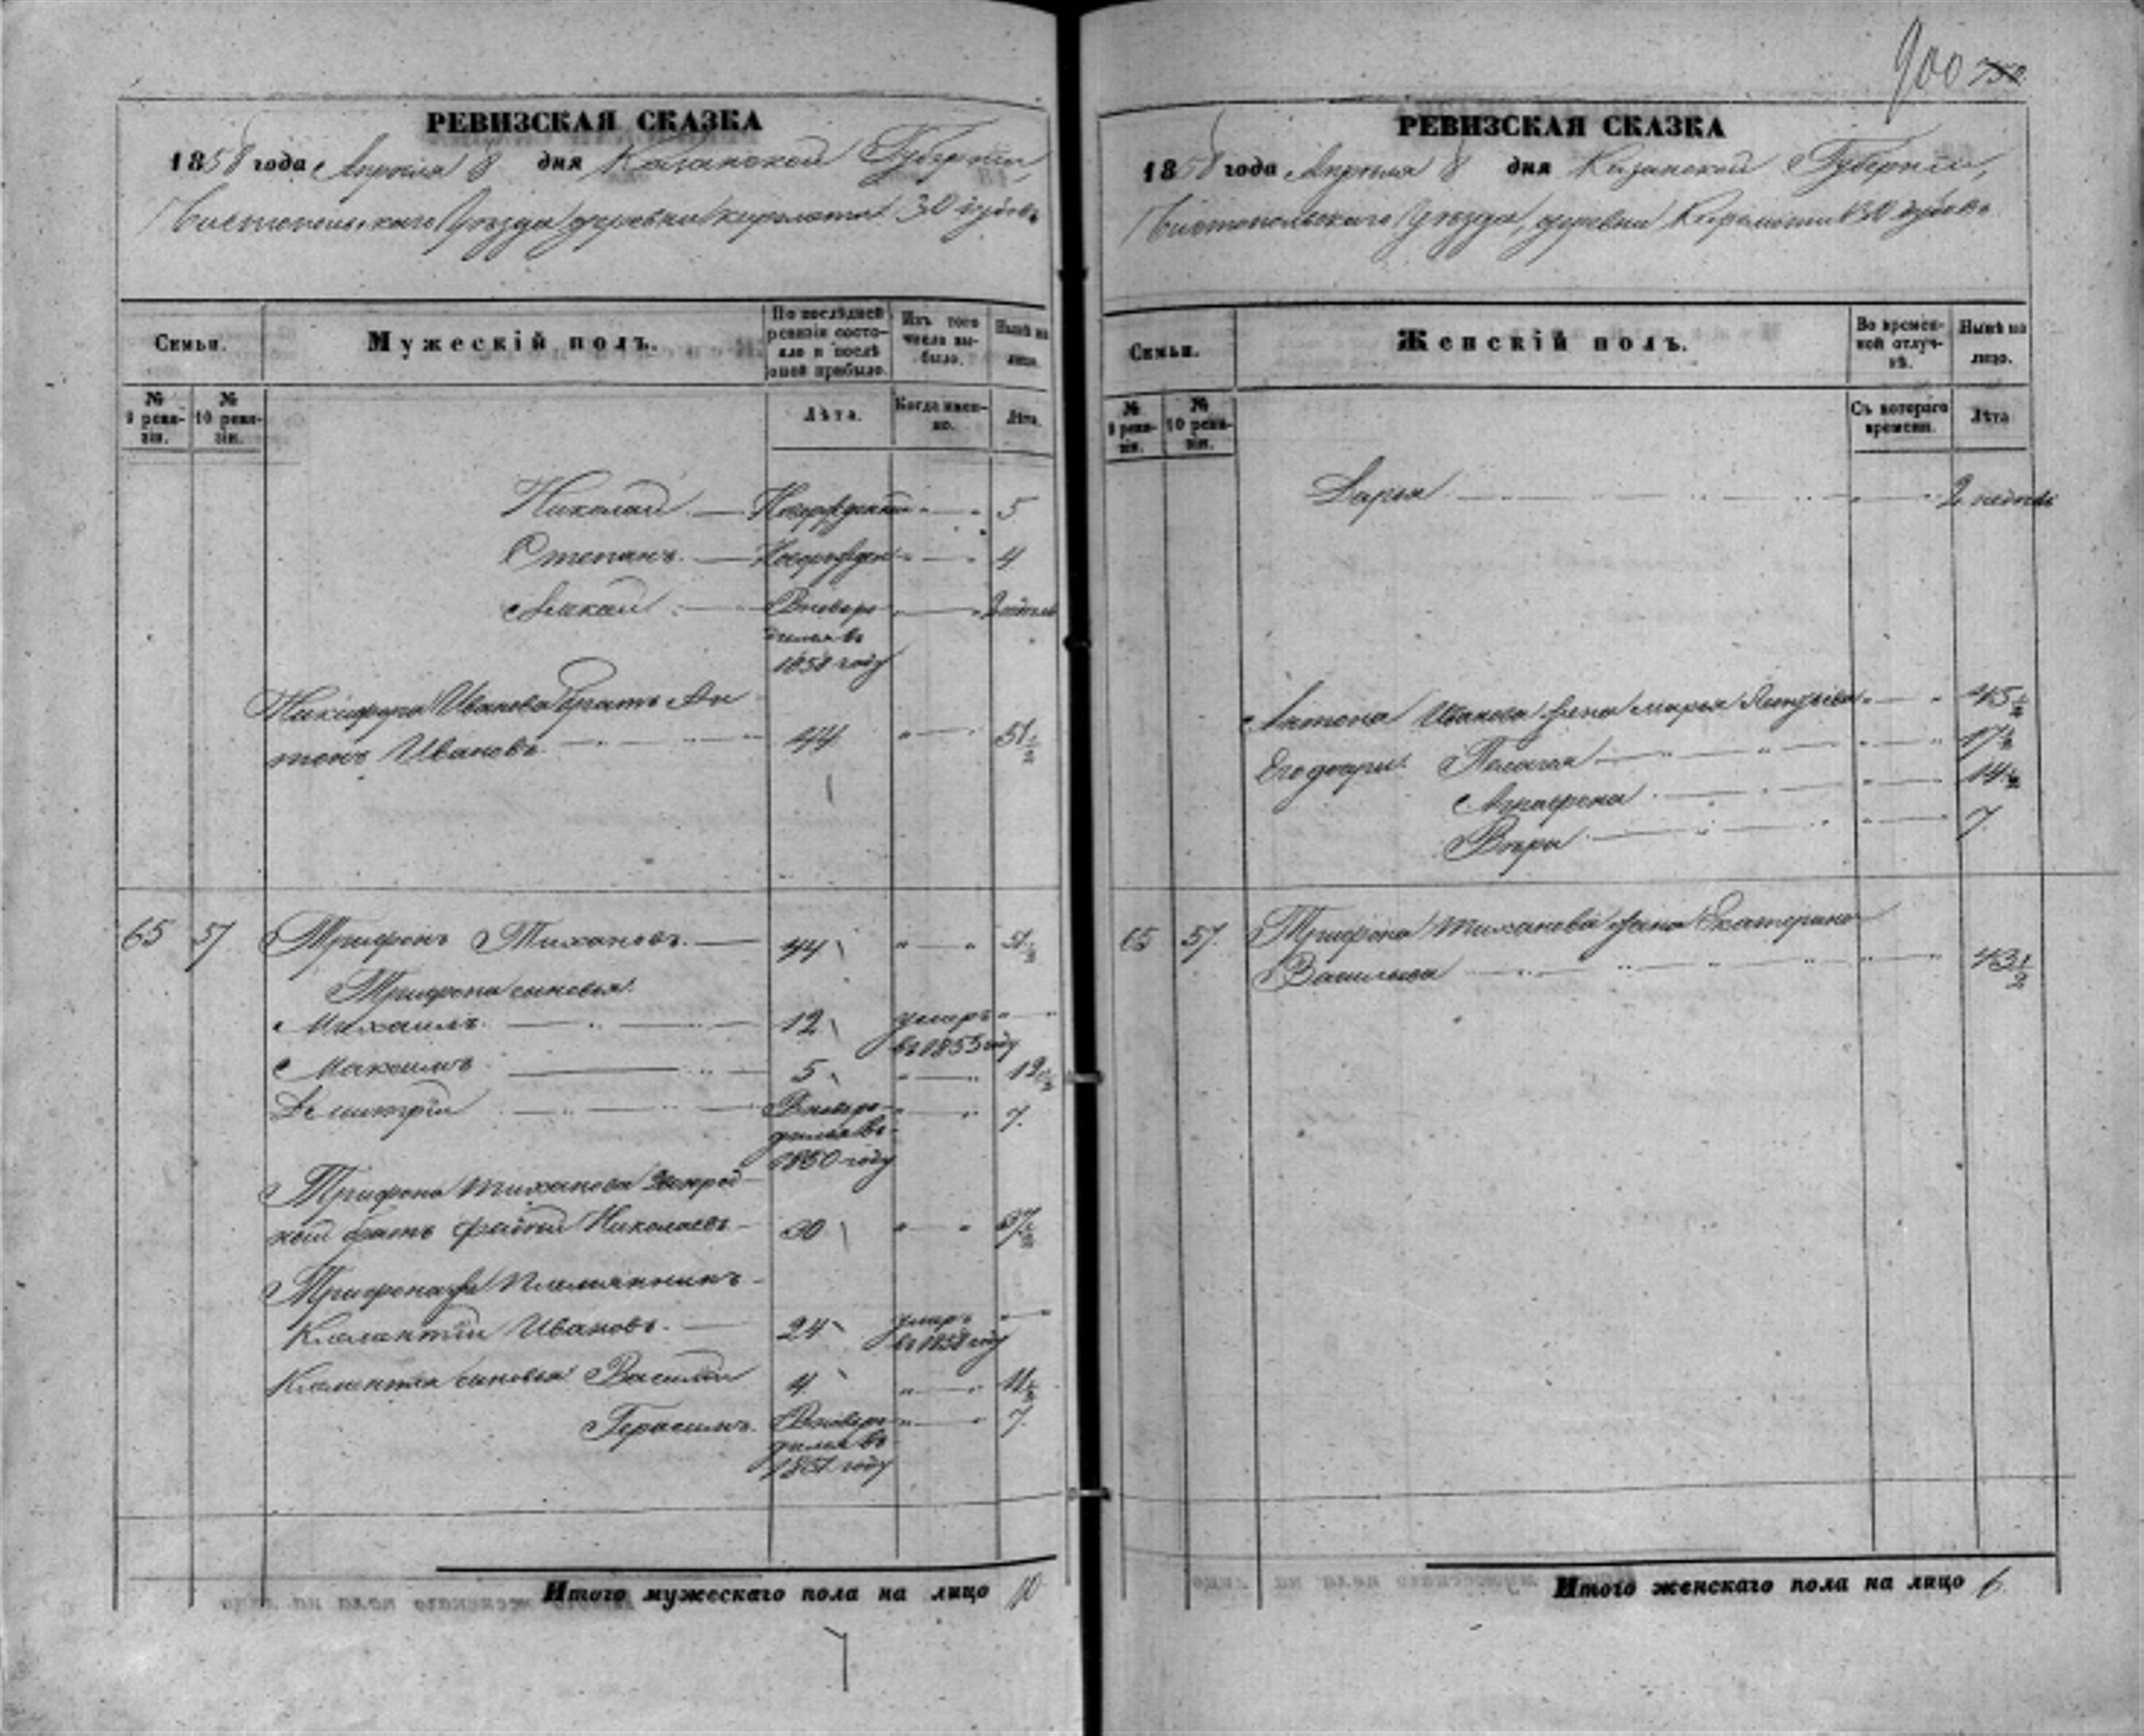 900 750
РЕВИЗСКАЯ СКАЗКА
1858 года Апреля 8 дня Казанской Губернии,
Чистопольскаго Уезда деревни
Семьи.
Мужескій полъ.
По послѣдней ревизіи состояло и послѣ оной прибыло.
Изъ того числа выбыло.
Нынѣ на лицо.
№ 9 ревизіи.
№ 10 ревизіи.
Лѣта.
Когда именно.
Лѣта.
Николай — 5
Степанъ — 4
Вновъро
дился въ
1858 году
Никифора Иванова братъ Ан
тонъ Ивановъ 44 " — " 51 1/2
65 57 Трифонъ Тихановъ. — 44 " — " 51 1/2
Трифона сыновья:
Михаилъ. 12 умеръ
въ 1855 году
Максимъ 5 12 1/2
Дмитрій Вновъро- 7.
дился въ
1850 году
Трифона Тиханова двоюрод
ный братъ Николаевъ 30 " " 37 1/2
Трифона же племянникъ
Климентій Ивановъ. — 24 умеръ
въ 1858 году
Климентія сыновья Василій 4 " — " 11 1/2
Герасимъ. Вновъро 7.
дился въ
1851 году
Итого мужескаго пола на лицо 10
РЕВИЗСКАЯ СКАЗКА
1858 года Апреля 8 дня Казанской Губернии,
Чистопольскаго Уезда, деревни
Семьи.
Женскій полъ.
Во временной отлучкѣ.
Нынѣ на лицо.
№ 9 ревизіи.
№ 10 ревизіи.
Съ котораго времени.
Лѣта
Дарья 2 недели
Антона Иванова жена Марья 45 1/2
Его дочери: Пелагея 17 1/2
Аграфена 14 1/2
Вѣра 7.
65 57. Трифона Тиханова жена Екатерина
Васильева 43 1/2
Итого женскаго пола на лицо 6.